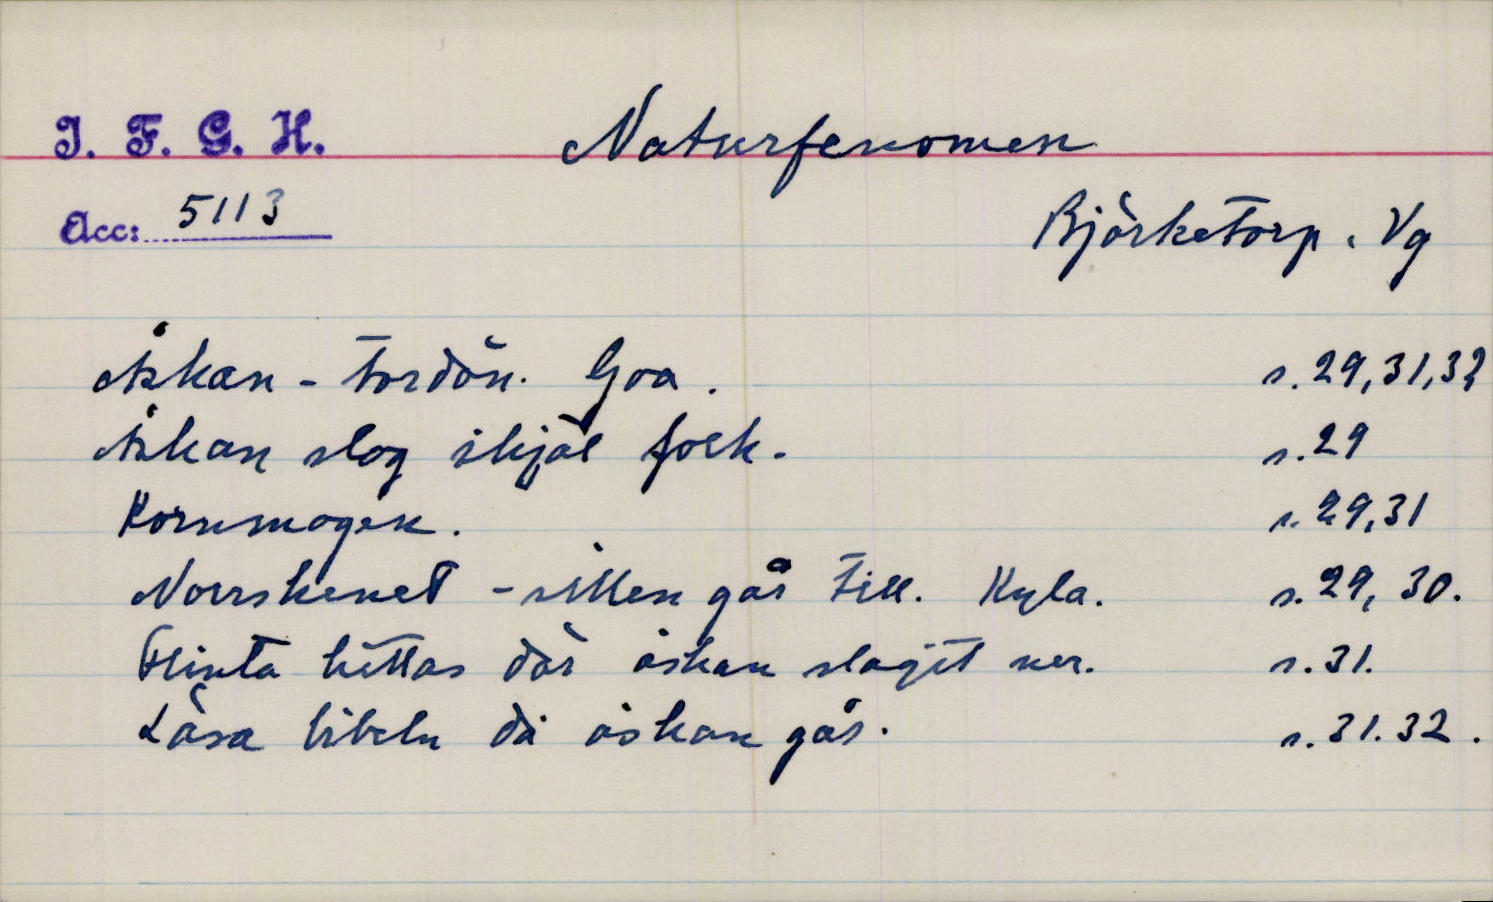 I. F. G. H.
Naturfenomen
Acc: 5113
Björketorp. Vg
Åskan - Tordön. Goa. s. 29, 31, 32
Åskan slog ihjäl folk. s. 29
Kornmogen. s. 29, 31
Norrskenet - sillen går till. Kyla. s. 29, 30.
Flinta hittas där åskan slagit ner. s. 31.
Läsa bibeln då åskan går. s. 31. 32.